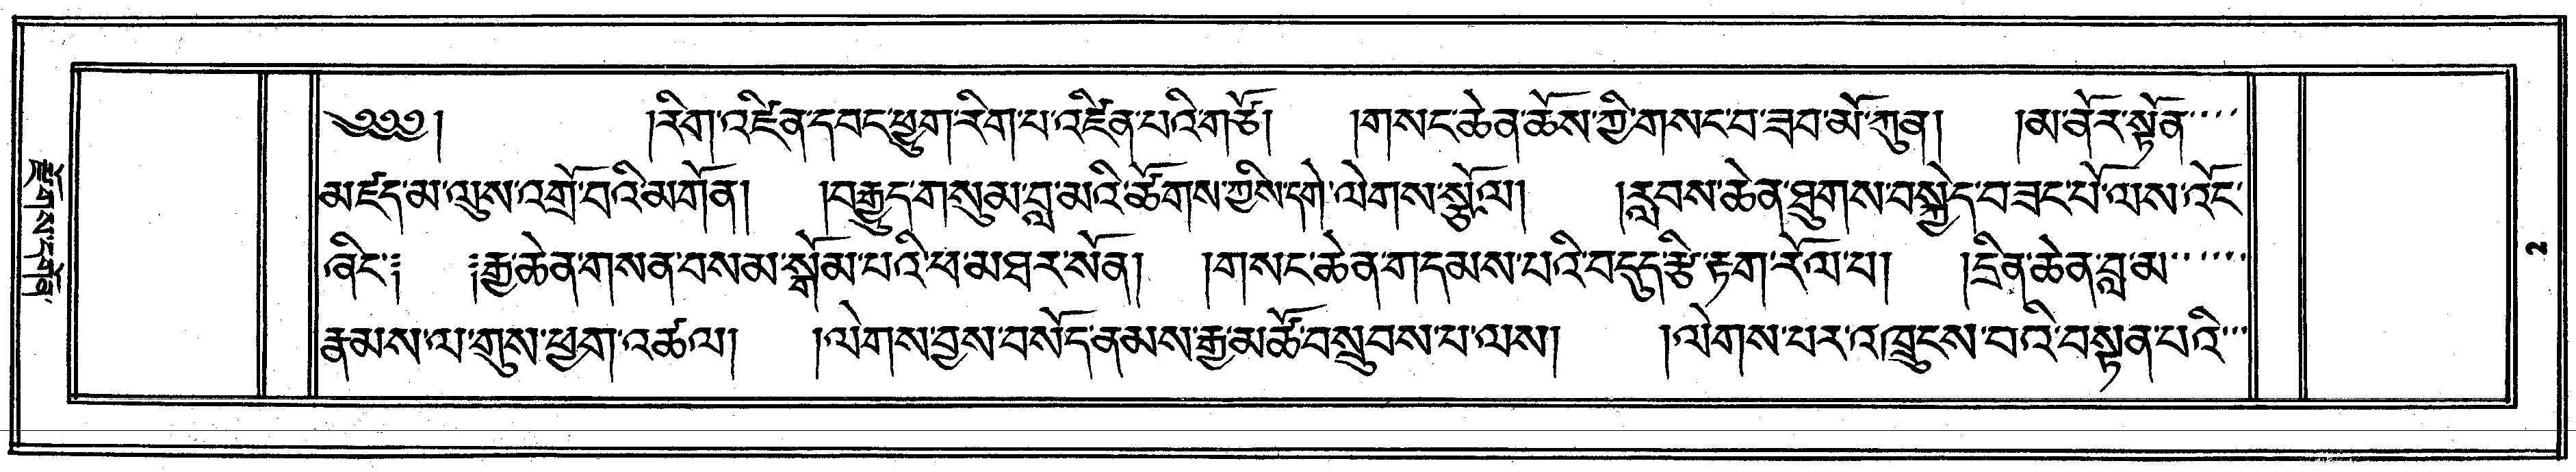 ༄༅༅། །རིག་འཛིན་དབང་ཕྱུག་རིག་པ་འཛིན་པའི་གཙོ། །གསང་ཆེན་ཆོས་ཀྱི་གསང་བ་ཟབ་མོ་ཀུན། །མ་ནོར་སྟོན་
མཛད་མ་ལུས་འགྲོ་བའི་མགོན། །བརྒྱུད་གསུམ་བླ་མའི་ཚོགས་ཀྱིས་དགེ་ལེགས་སྩོལ། །རླབས་ཆེན་ཐུགས་བསྐྱེད་བཟང་པོ་ལས་འོང་
ཞིང་༔ ༔རྒྱ་ཆེན་གསན་བསམ་སྒོམ་པའི་ཕ་མཐར་སོན། །གསང་ཆེན་གདམས་པའི་བདུད་རྩི་རྟག་རོལ་པ། །དྲིན་ཆེན་བླ་མ་
རྣམས་ལ་གུས་ཕྱག་འཚལ། །ལེགས་བྱས་བསོད་ནམས་རྒྱ་མཚོ་བསྲུབས་པ་ལས། །ལེགས་པར་འཁྲུངས་བའི་བསྟན་པའི་